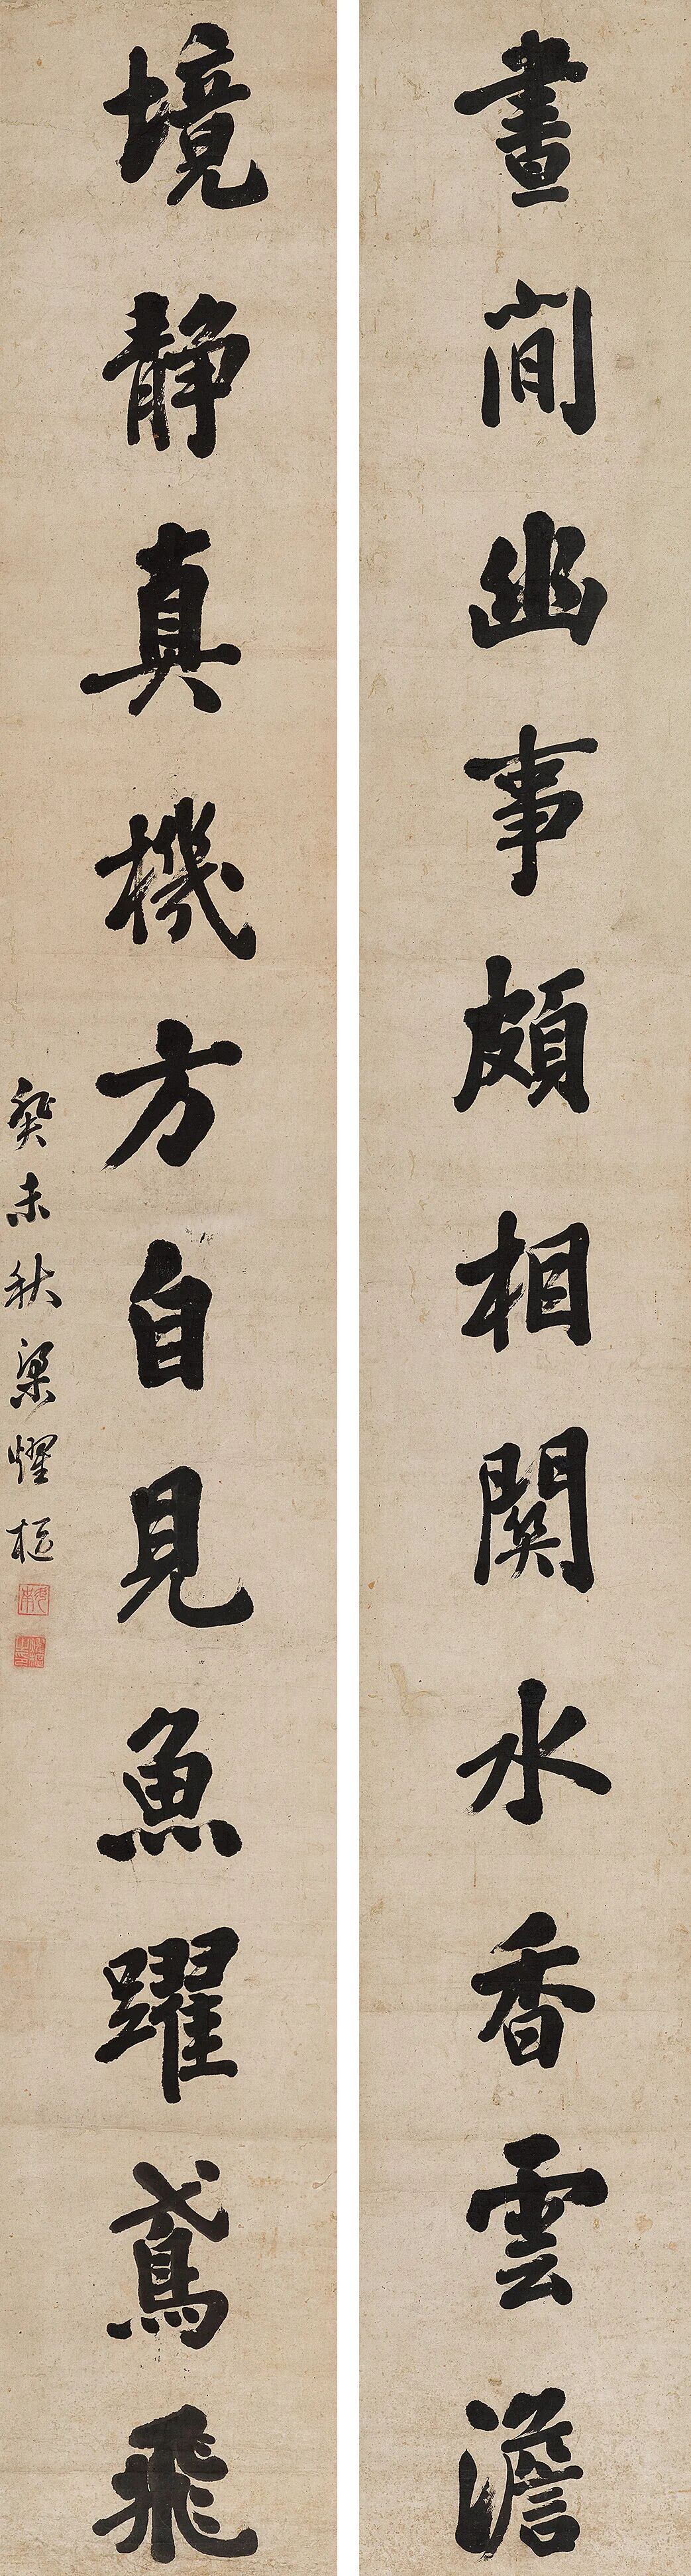 晝閒幽事頗相關水香雲澹
境静真機方自見魚躍鳶飛
癸未秋梁耀樞